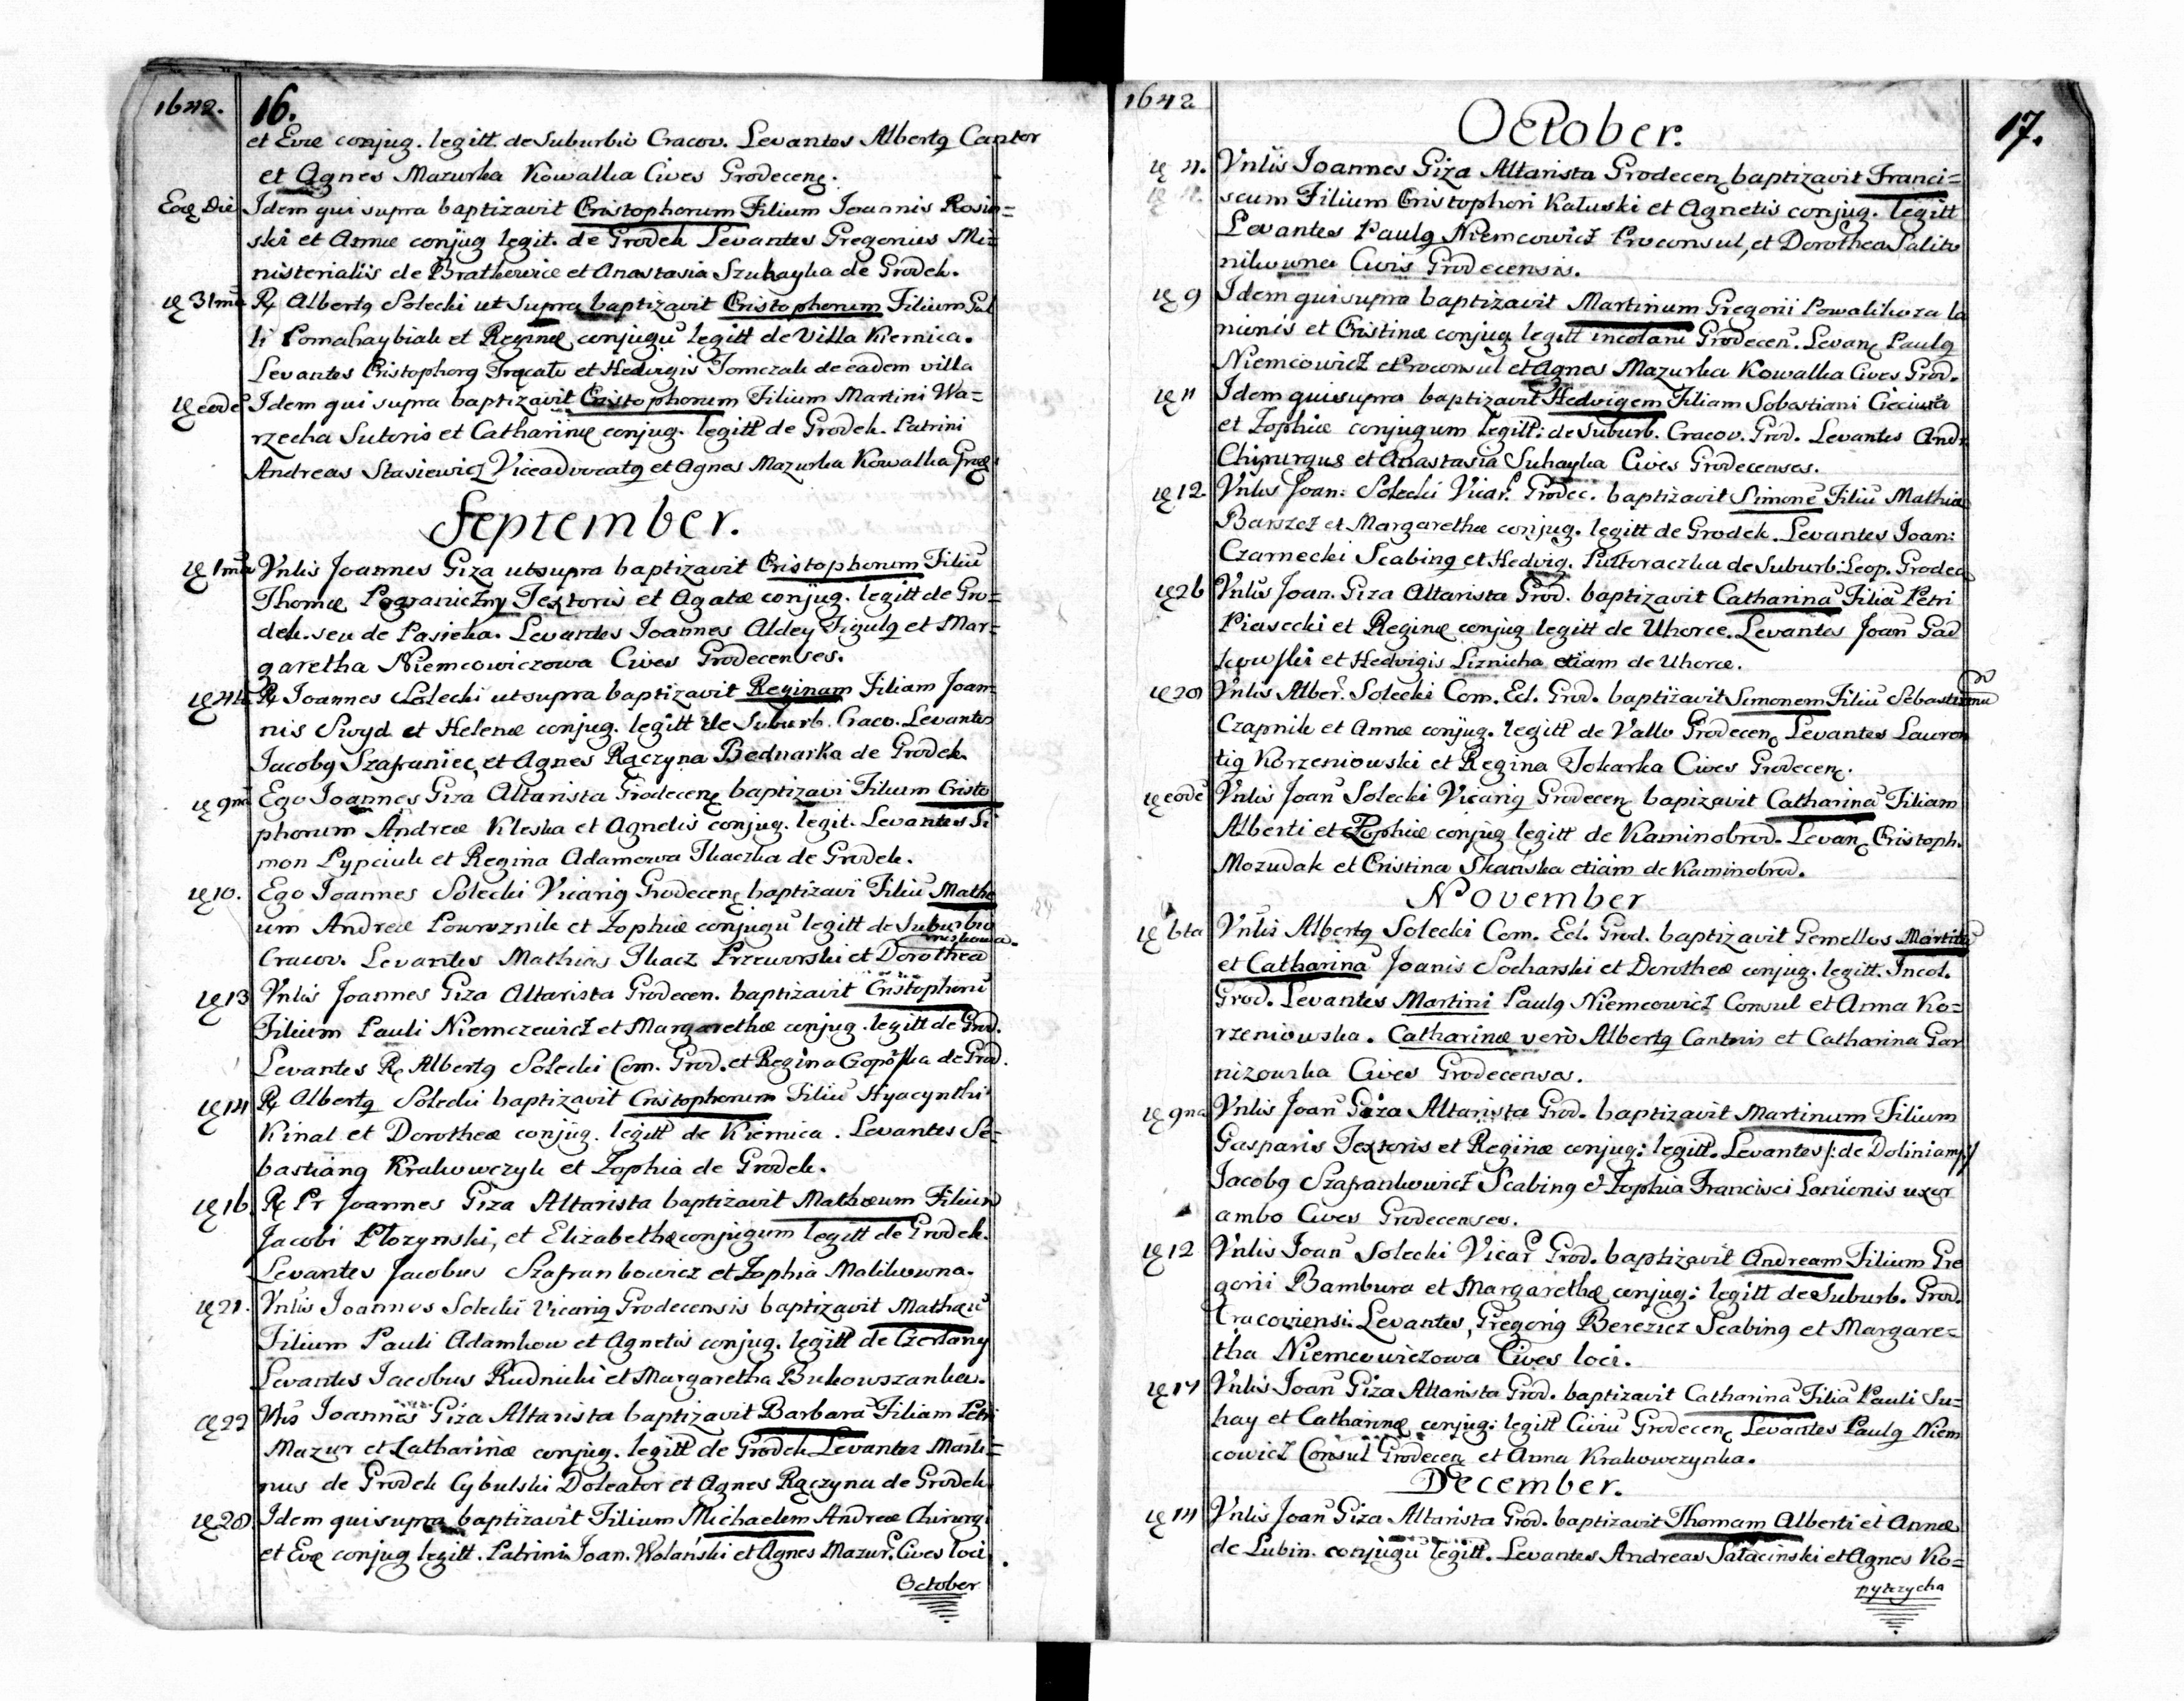 1642. 16.
et Evæ conjug. legitt. de Suburbio Cracov. Levantes Albertq Cantor
et Agnes Mazurka Kowalka Cives Grodecenę.
Eoę Die Idem qui supra baptizavit Cristophorum Filium Joannis Rosin=
ski et Annæ conjug legit. de Grodek Levantes Gregorius Mi=
nisterialis de Bratkowice et Anastasia Szuhayka de Grodek.
31ma Rę Albertq Solecki ut supra baptizavit Cristophorum Filium Gal
li Pomahaybiak et Reginę conjugū legitt de Villa Kiernica.
Levantes Cristophorq et Hedvigis Tomczak de eadem villa
eodē Idem qui supra baptizavit Cristophorum Filium Martini Wa=
rzecha Sutoris et Catharinę conjug. legitt de Grodek. Patrini
Andreas Stasiewicz Viceadvocatq et Agnes Mazurka Kowalka
September.
1ma Vnlis Joannes Giza ut supra baptizavit Cristophorum Filiū
Thomæ Pograniczny Textoris et Agatæ conjug. legitt de Gro=
dek. seu de Pasieka. Levantes Joannes Aldey Figulq et Mar=
garetha Niemcowiczowa Cives Grodecenses.
4ta Rę Joannes Solecki ut supra baptizavit Reginam Filiam Joan
nis Swyd et Helenæ conjug. legitt de Suburb. Craco. Levantes
Jacobq Szafraniec, et Agnes Rączyna Bednarka de Grodek.
9na Ego Joannes Giza Altarista Grodecenę baptizavi Filium Cristo
phorum Andreæ Kleska et Agnetis conjug. legit. Levantes Si
mon Pypciuk et Regina Adamowa Tkaczka de Grodek.
10. Ego Joannes Solecki Vicariq Grodecenę baptizavi Filiū Mathe
um Andreæ Powroznik et Zophiæ conjugū legitt de Suburbio
Cracov. Levantes Mathias Tkacz Przeworski et Dorothea
13 Vnlis Joannes Giza Altarista Grodecen. baptizavit Cristophorū
Filium Pauli Niemczewicz et Margarethæ conjug. legitt de Grod.
Levantes Rę Albertq Solecki Com. Grod. et Regina de Grod.
14 Rę Albertq Solecki baptizavit Cristophorum Filiū Hyacynthi
Kinal et Dorotheæ conjug. legitt de Kiernica. Levantes Se=
bastianq Krakowczyk et Zophia de Grodek.
16. Rę Pr Joannes Giza Altarista baptizavit Mathæum Filium
Jacobi Plozynski, et Elizabethæ conjugum legitt de Grodek.
Levantes Jacobus Szafrankowicz et Zophia Malikowna.
21. Vnlis Joannes Solecki Vicariq Grodecensis baptizavit Mathæū
Filium Pauli Adamkow et Agnetis conjug. legitt de Czerlany
Levantes Jacobus Rudnicki et Margaretha Bukowszanka.
22 Joannes Giza Altarista baptizavit Barbarā Filiam Petri
Mazur et Catharinæ conjug. legitt de Grodek Levantes Marti=
nus de Grodek Cybulski Doleator et Agnes Rączyna de Grodek
28. Idem qui supra baptizavit Filium Michaelem Andreæ Chirurgi
et Evę conjug legitt. Patrini Joan. Wolański et Agnes Mazur. Cives loci
October
1642
17.
October.
4. Vnlis Joannes Giza Altarista Grodecenę baptizavit Franci=
scum Filium Cristophori Kaluski et Agnetis conjug. legitt
Levantes Paulq Niemcowicz Proconsul, et Dorothea Salitr
nikowna Civis Grodecensis.
9 Idem qui supra baptizavit Martinum Gregorii Powalikoza la
nionis et Cristinæ conjug legitt incolarū Grodecen. Levanę Paulq
Niemcowicz Proconsul et Agnes Mazurka Kowalka Cives Grod.
11 Idem qui supra baptizavit Hedvigem Filiam Sobastiani Cieciura
et Zophiæ conjugum legitt: de Suburb. Cracov. Grod. Levantes Andr
Chirurgus et Anastasia Suhayka Cives Grodecenses.
12 Vnlis Joan: Solecki Vicar. Grodec. baptizavit Simonē Filiū Mathiæ
Barszcz et Margarethæ conjug. legitt de Grodek. Levantes Joan:
Czarnecki Scabinq et Hedvig. Pultoraczka de Suburb: Leop. Grodec
26 Vnlis Joan. Giza Altarista Grod. baptizavit Catharinā Filiā Petri
Piasecki et Reginę conjug legitt de Uhorce. Levantes Joan Gad
kowski et Hedvigis Liznicha etiam de Uhorce.
28 Vnlis Alber. Solecki Com. Ecl. Grod. baptizavit Simonem Filiū Sebastiani
Czapnik et Annæ conjug. legitt de Vallo Grodecenę Levantes Lauren
tiq Korzeniowski et Regina Tokarka Cives Grodecenę.
eodē Vnlis Joan Solecki Vicariq Grodecenę bapizavit Catharinā Filiam
Alberti et Zophiæ conjug legitt de Kaminobrod. Levanę Cristoph.
Mozudak et Cristina Skańska etiam de Kaminobrod.
November
6ta Vnlis Albertq Solecki Com. Ecl. Grod. baptizavit Gemellos Martinū
et Catharinā Joanis Socharski et Dorotheæ conjug. legitt. Incol.
Grod. Levantes Martini Paulq Niemcowicz Consul et Anna Ko=
rzeniowska. Catharinæ verò Albertq Cantoris et Catharina Gar
nizowska Cives Grodecenses.
9na Vnlis Joan Giza Altarista Grod. baptizavit Martinum Filium
Gasparis Textoris et Reginæ conjug: legitt. Levantes /: de Doliniany :/
Jacobq Szafrankowicz Scabinq et Zophia Francisci Lanionis uxor
ambo Cives Grodecenses.
12 Vnlis Joan Solecki Vicar Grod. baptizavit Andream Filium Gre
gorii Bambura et Margarethæ conjug: legitt de Suburb. Grod.
Cracoviensi. Levantes, Gregoriq Berezicz Scabinq et Margare=
tha Niemcowiczowa Cives loci.
17 Vnlis Joan Giza Altarista Grod. baptizavit Catharinā Filiā Pauli Su=
hay et Catharinę conjug: legitt Civiū Grodecenę Levantes Paulq Niem
cowicz Consul Grodecenę et Anna Krakowczynka.
December.
14 Vnlis Joan Giza Altarista Grod. baptizavit Thomam Alberti et Annæ
de Lubin. conjugū legitt. Levantes Andreas Salacinski et Agnes Ko=
pytrzycha